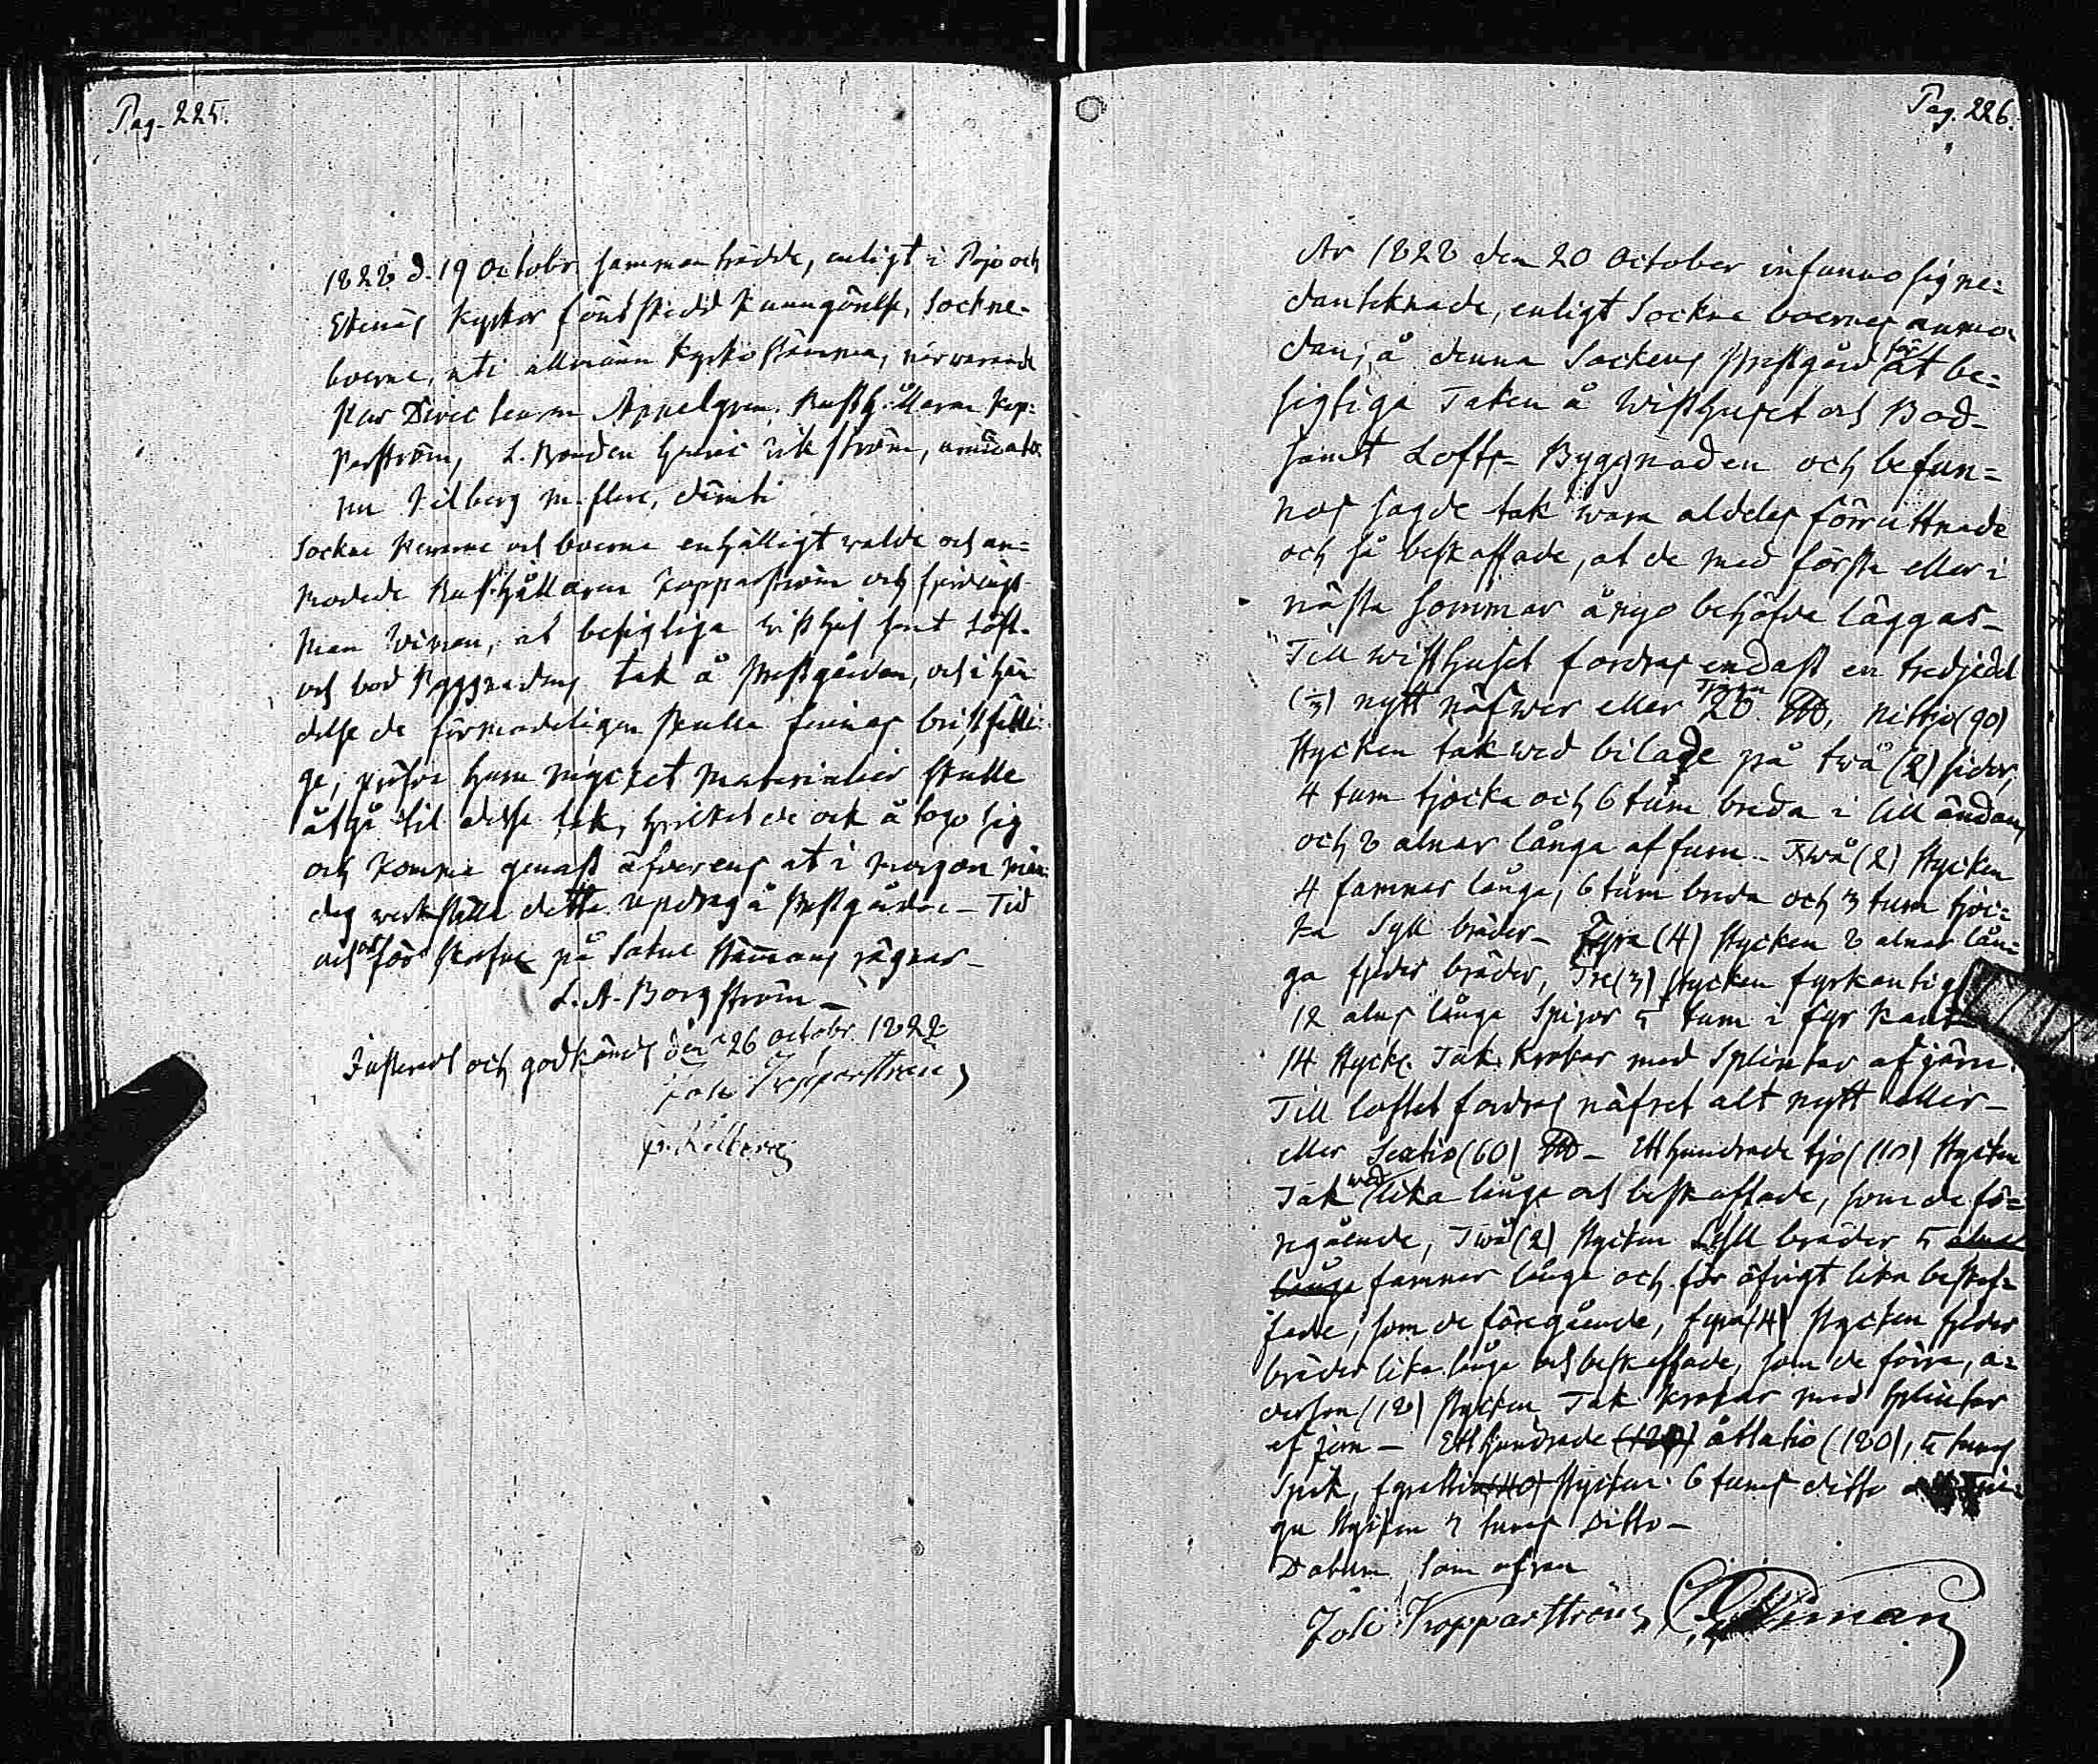 Pag. 225.
1828 d. 19 Octobr sammanträdde, enligt i Pojo och
Ekenäs Kyrkor förut skedd Kunngörelse, Sockne-
boerne, uti allmänn Kyrko stämma, närvarande
Appelgren, Rusth.ållarne Kop=
parström, L. Bonden Henric Wikström,
Kilberg m. flere, då
Sockne och boerne enhälligt valde och an=
modade Rusthållaren Kopparström och fjerdings
man Wiman, at besigtiga Wisthus samt Loft-
och bod byggnadens tak å Prestgården, och i hän
delse de förmodeligen skulle finnas bristfälli=
ge, pröfva huru mycket materialier skulle
åtgå til desse tak, hvilket de ock å togo sig
och komme genast öfverens at i morgon mån
dag verkställa detta updrag å Prestgården - Tid
och ort för skrefne på Sockne Stämmans vägnar -
L. A. Borgström -
Justerat och godkändt den 26 Octobr 1828
Joh: Kopparström,
Kilberg
Pag. 226.
År 1828 den 20 October infunno sig ne=
dantecknade, enligt Sockne boernes anmo
dan, å denna Sockens Prestgård för at be=
sigtiga Taken å Wisthuset och Bod-
samt Lofts- Byggnaden och befun=
nos sagde tak vara aldeles förruttnade
och så beskaffade, at de med första eller i
nästa sommar ånyo behöfva läggas -
Till Wisthuset fordras endast en tredjedel
(⅓) nytt näfwer eller Tjugu 20 , Nittio (90)
stycken takved bilade på två (2) sidor,
4 tum tjocka och 6 tum breda i lill ändan,
och 8 alnar långa af furu - Två (2) stycken
4 famnar långe, 6 tum breda och 3 tum tjoc=
ka Syll bräder - Fyra (4) stycken 8 alnar lån=
ga fjeder bräder, Tre (3) stycken fyrkantige
12 alns långe Spiror 5 tum i fyr kant
14 styck. Tak krokar med Splinter af järn.
Till loftet fordras näfret alt nytt eller -
eller Sextio (60) - Ett hundrade tjo (110) stycken
Tak ved lika långe och beskaffade, som de fö=
regående, Två (2) stycken Syll bräder 5 alnar
långe famnar långe och för öfrigt lika beskaf=
fade, som de föregående, fyra (4) stycken fjeder
bräder lika långe och beskaffade, som de förra, a=
derton (18) stycken Tak krokar med Splinter
af jern - Ett hundrade (180) åttatio (180), 5 tums
Spik, fyrattio (40) stycken 6 tums ditto
gu stycken 3 tums Ditto -
Datum som ofvan
Joh: Kopparström, Wiman